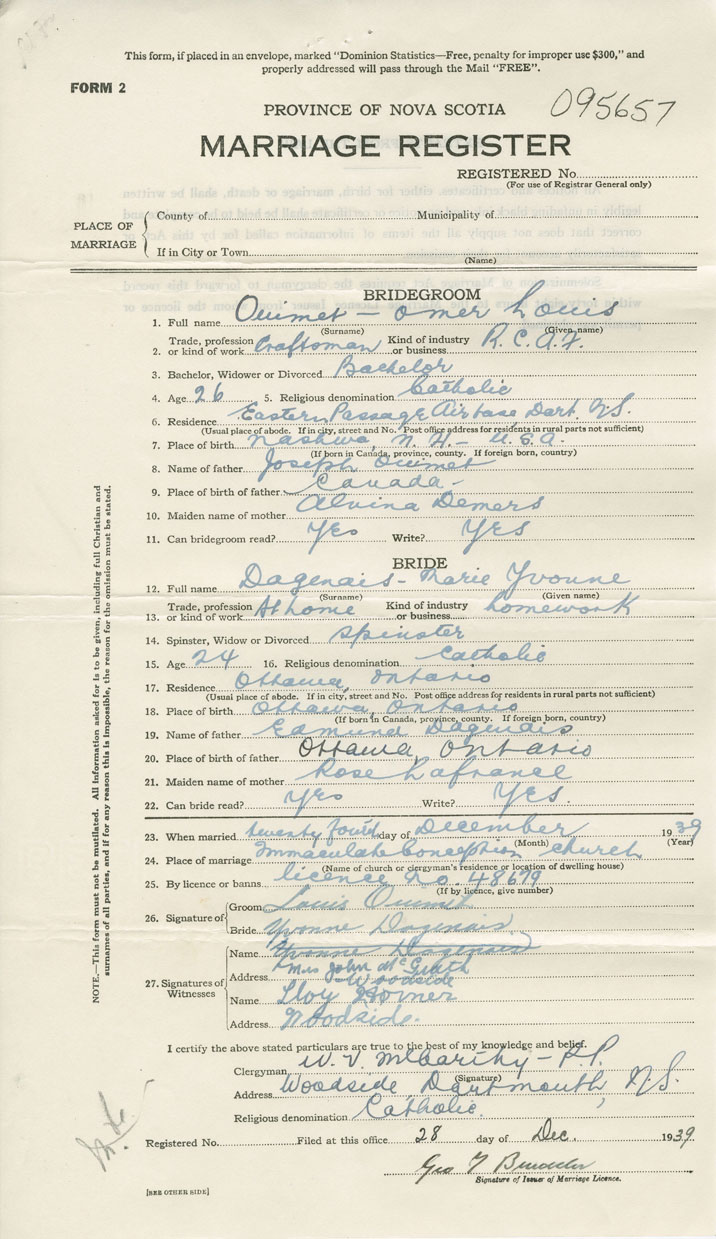 This form, if placed in an envelope, marked "Dominion Statistics—Free, penalty for improper use $300," and
properly addressed will pass through the Mail "FREE".
FORM 2
PROVINCE OF NOVA SCOTIA
095657
MARRIAGE REGISTER
REGISTERED No.
(For use of Registrar General only)
PLACE OF MARRIAGE
County of Municipality of
If in City or Town
(Name)
BRIDEGROOM
1. Full name Ouimet — Omer Louis
(Surname) (Given name)
2. Trade, profession or kind of work Craftsman Kind of industry or business R.C.A.F.
3. Bachelor, Widower or Divorced Bachelor
4. Age 26 5. Religious denomination Catholic
6. Residence Eastern Passage Airbase, Dart. N.S.
(Usual place of abode. If in city, street and No. Post office address for residents in rural parts not sufficient)
7. Place of birth Nashua, N.H. — U.S.A.
(If born in Canada, province, county. If foreign born, country)
8. Name of father Joseph Ouimet
9. Place of birth of father Canada -
10. Maiden name of mother Alvina Demers
11. Can bridegroom read? Yes Write? Yes
BRIDE
12. Full name Dagenais - Marie Yvonne
(Surname) (Given name)
13. Trade, profession or kind of work At home Kind of industry or business homework
14. Spinster, Widow or Divorced Spinster
15. Age 24 16. Religious denomination Catholic
17. Residence Ottawa, Ontario
(Usual place of abode. If in city, street and No. Post office address for residents in rural parts not sufficient)
18. Place of birth Ottawa, Ontario
(If born in Canada, province, county. If foreign born, country)
19. Name of father Edmund Dagenais
20. Place of birth of father Ottawa, Ontario
21. Maiden name of mother Rose Lafrance
22. Can bride read? Yes Write? Yes.
23. When married twenty fourth day of December 1939
(Month) (Year)
24. Place of marriage Immaculate Conception church
(Name of church or clergyman's residence or location of dwelling house)
25. By licence or banns licence no. 48679
(If by licence, give number)
26. Signature of
Groom Louis Ouimet
Bride Yvonne Dagenais
27. Signatures of Witnesses
Name Yvonne Dagenais
Mrs John McGrath
Address Woodside
Name Lloy Homer
Address Woodside.
I certify the above stated particulars are true to the best of my knowledge and belief.
Clergyman W. V. McCarthy — P.P.
(Signature)
Address Woodside, Dartmouth, N.S.
Religious denomination Catholic.
Registered No. Filed at this office 28 day of Dec. 1939
Geo
Signature of Issuer of Marriage Licence.
[SEE OTHER SIDE]
NOTE.—This form must not be mutilated. All information asked for is to be given, including full Christian and
surnames of all parties, and if for any reason this is impossible, the reason for the omission must be stated.